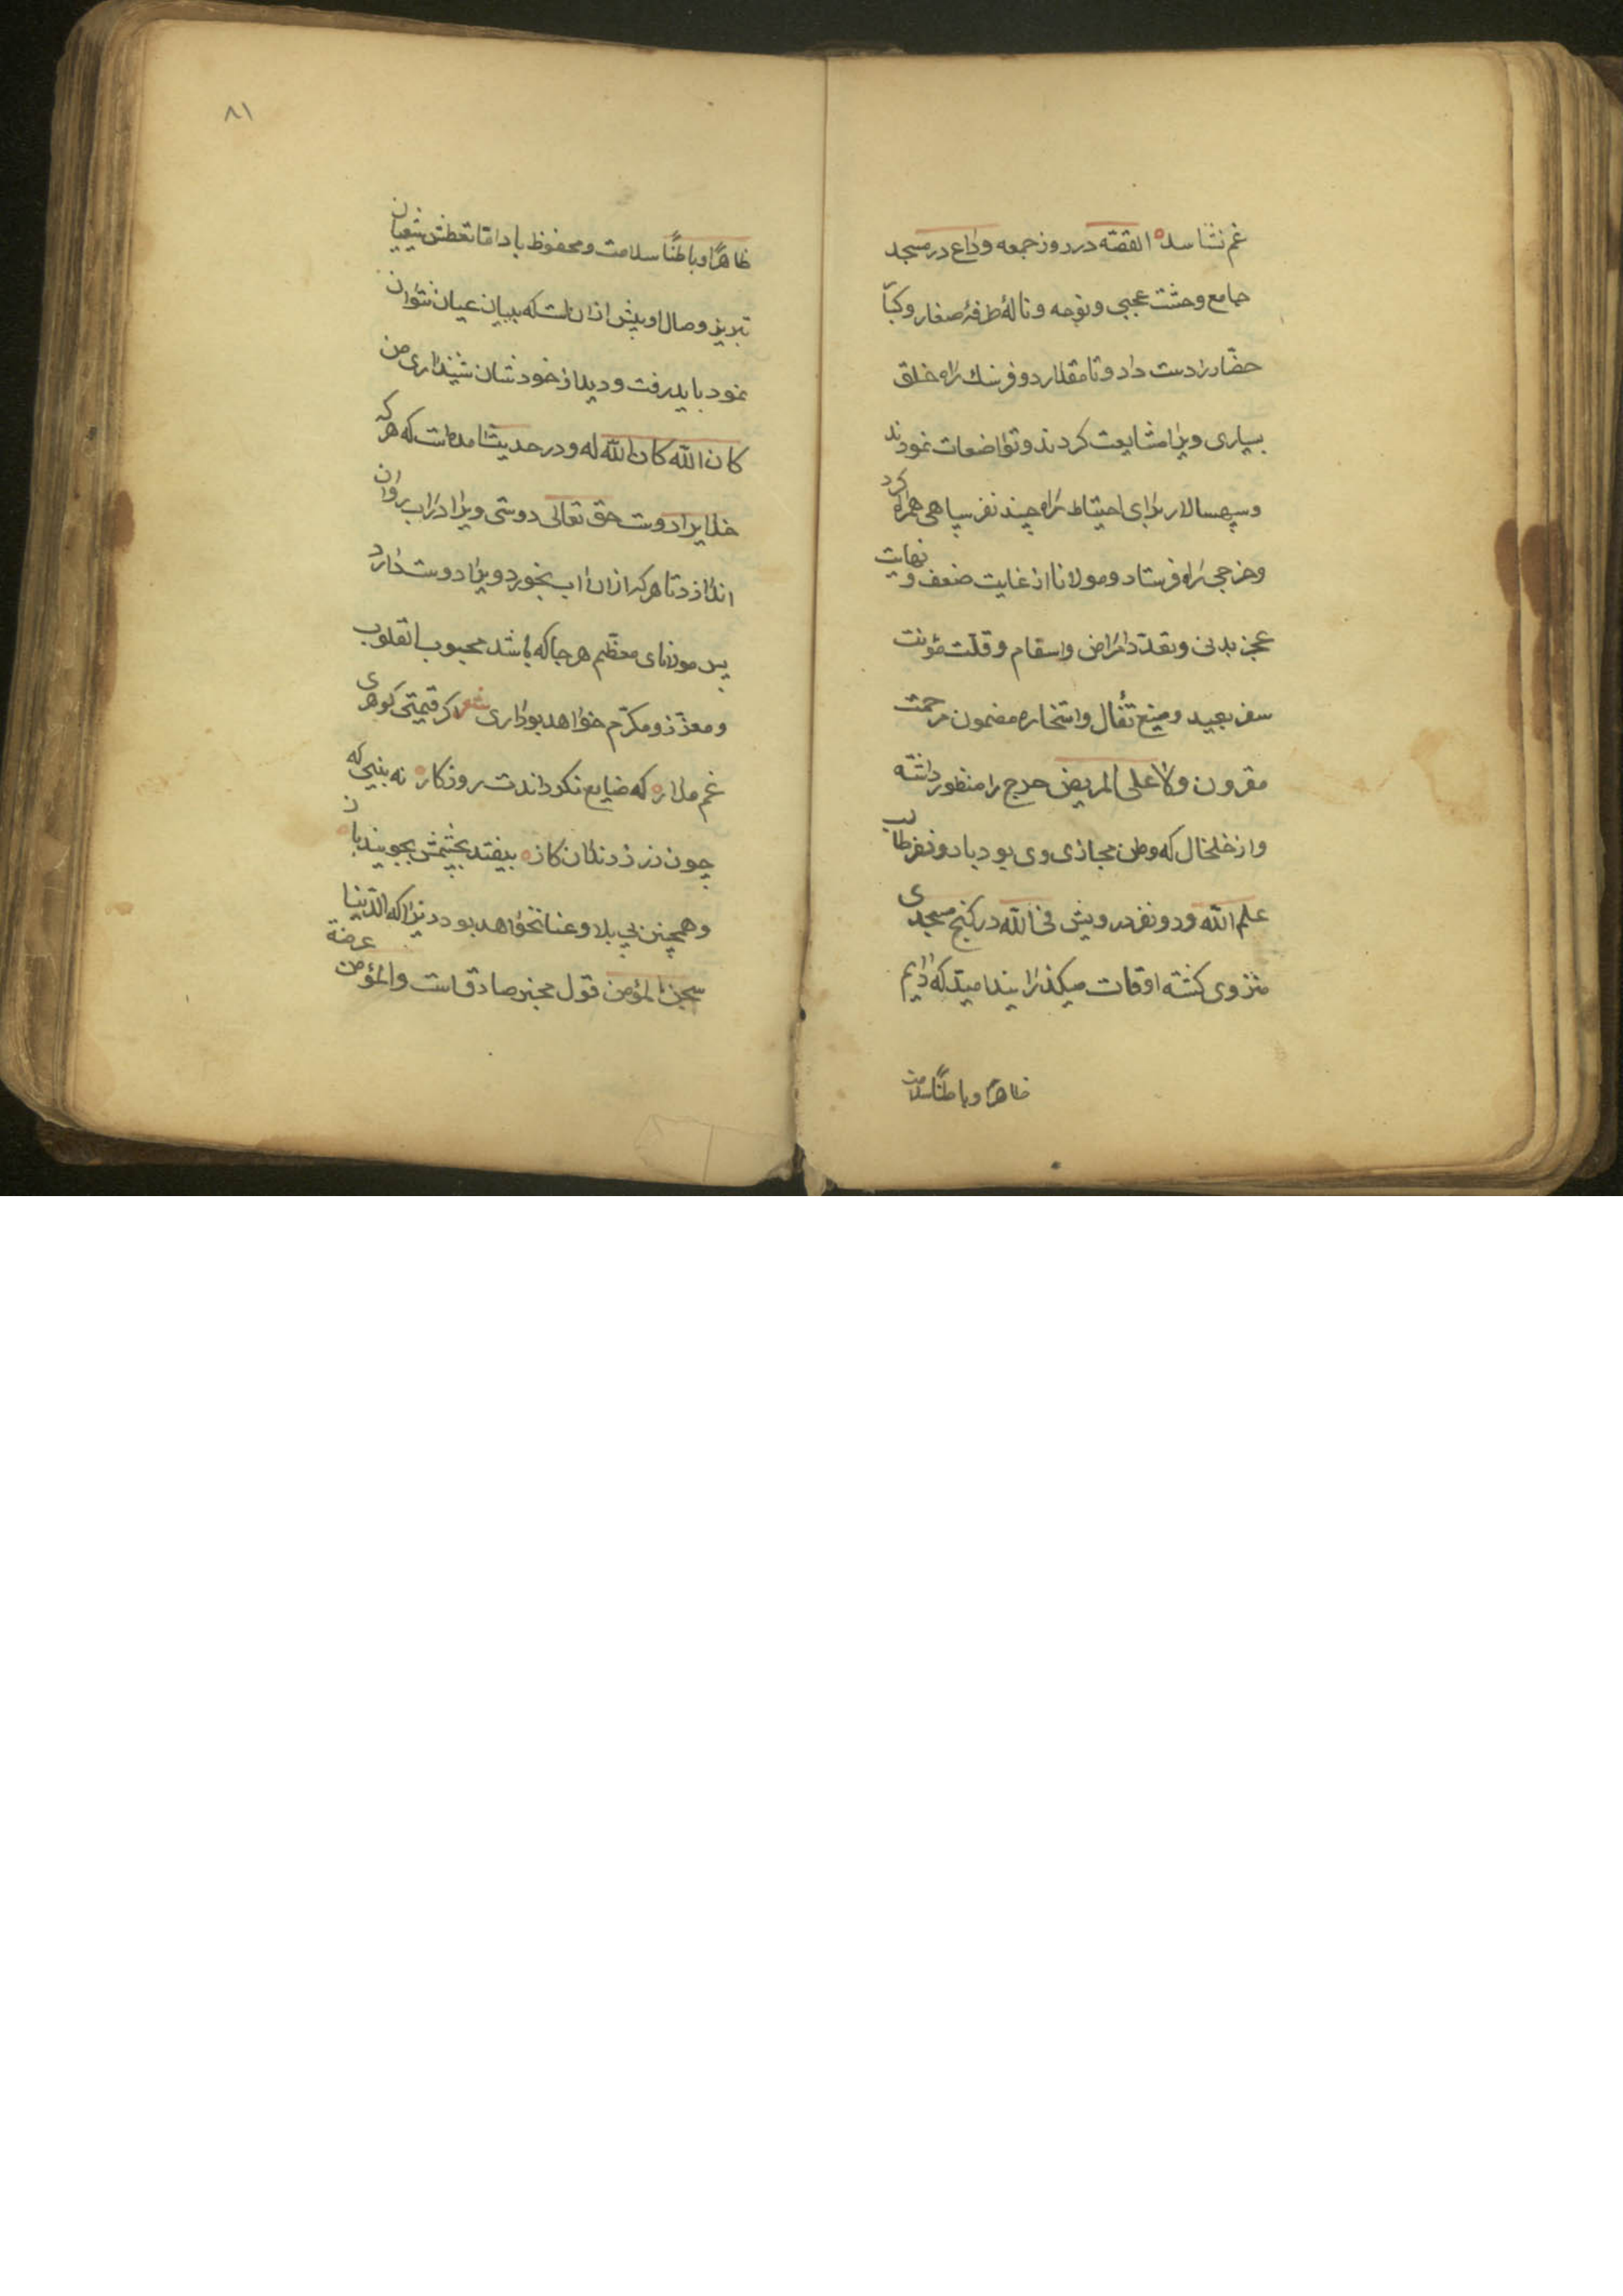 غم نشناسد القصّه در روز جمعه وداع در مسجد
جامع وحشت عجبی و نوحه و نالهٔ طرفهٔ صغار و کبار
حضّار را دست داد و تا مقدار دو فرسنك راه خلق
بسیاری ویرا مشایعت کردند و تواضعات نمودند
و سپهسالار برای احتیاط راه چند نفر سپاهی همراه کرد
و خرجی راه فرستاد و مولانا از غایت ضعف و نهایت
عجز بدنی و تعدّد امراض و اسقام و قلّت مؤنت
سفر بعید و منع تفّال و استخاره مضمون مرحمت
مقرون ولا علی المریض حرج را منظور داشته
و از خلخال که وطن مجازی وی بود با دو نفر طالب
علم الله و دو نفر درویش فی الله در کنج مسجدی
منزوی کشته اوقات میکذرانید امید که دایم
ظاهرًا و باطنًا سلامت
۸۱
ظاهرًا و باطنًا سلامت و محفوظ باد امّا تعطش شیعیان
تبریز وصال او بیش از ان است که ببیان عیان نتوان
نمود باید رفت و دید از خودشان شنید اری من
کان الله کان الله له و در حدیث امده است که هر که
خدایرا دوست حق تعالی دوستی ویرا در اب روان
اندازد تا هر که از ان اب بخورد ویرا دوست دارد
پس مولانای معظّم هر جا که باشد محبوب القلوب
و معزّز و مکرّم خواهد بود اری شعر اکر قیمتی کوهری
غم مدار که ضایع نکرداندت روزکار نه بینی که
چون زر ز دندان کاز بیفتد بخشمش بجویند باز
و همچنین بی بلا و عنا نخواهد بود زیرا که الدّنیا
سجن المؤمن قول مخبر صادق است والمؤمن عرضة